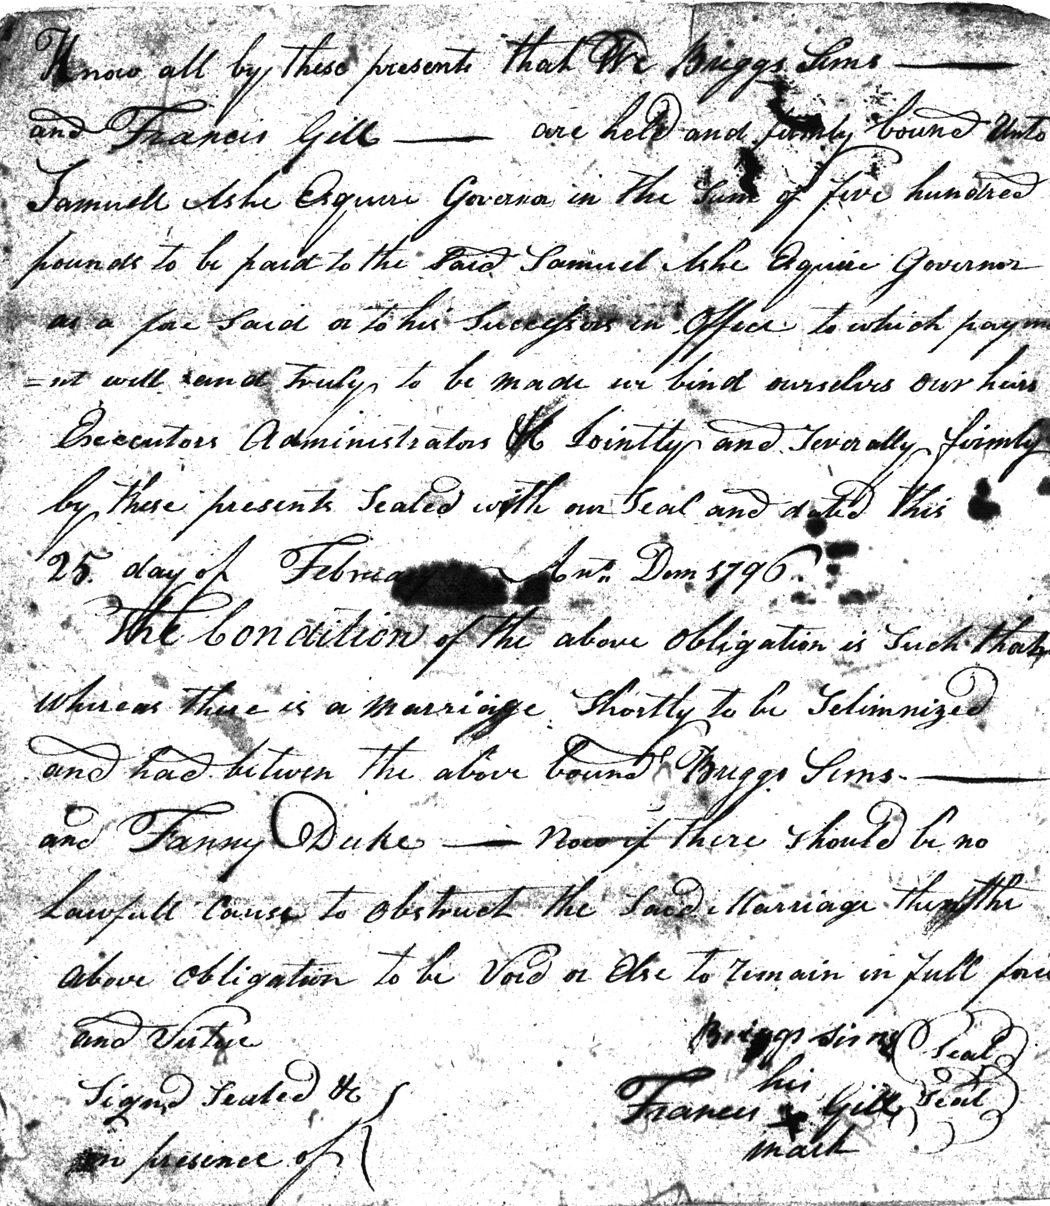 Know all by these presents that We Briggs Sims
and Francis Gill are held and firmly bound Unto
Samuell Ashe Esquire Governor in the Sum of five hundred
pounds to be paid to the Said Samuel Ashe Esquire Governor
as a fore Said or to his Successors in Office to which paym
=nt well and truly to be made we bind ourselves our heirs
Executors Administrators &c Jointly and Severally firmly
by these presents Sealed with our Seal and dated this
25. day of February Ano. Dom 1796
The Condition of the above obligation is Such that
whereas there is a marriage Shortly to be Selimnized
and had between the above bound Briggs Sims
and Fanny Duke Now if there should be no
Lawfull Cause to obstruct the Said Marriage then the
above obligation to be Void or Else to remain in full force
and Virtue
Briggs Sims Seal
Signd Sealed &c
in presence of
his
Francis x Gill Seal
mark